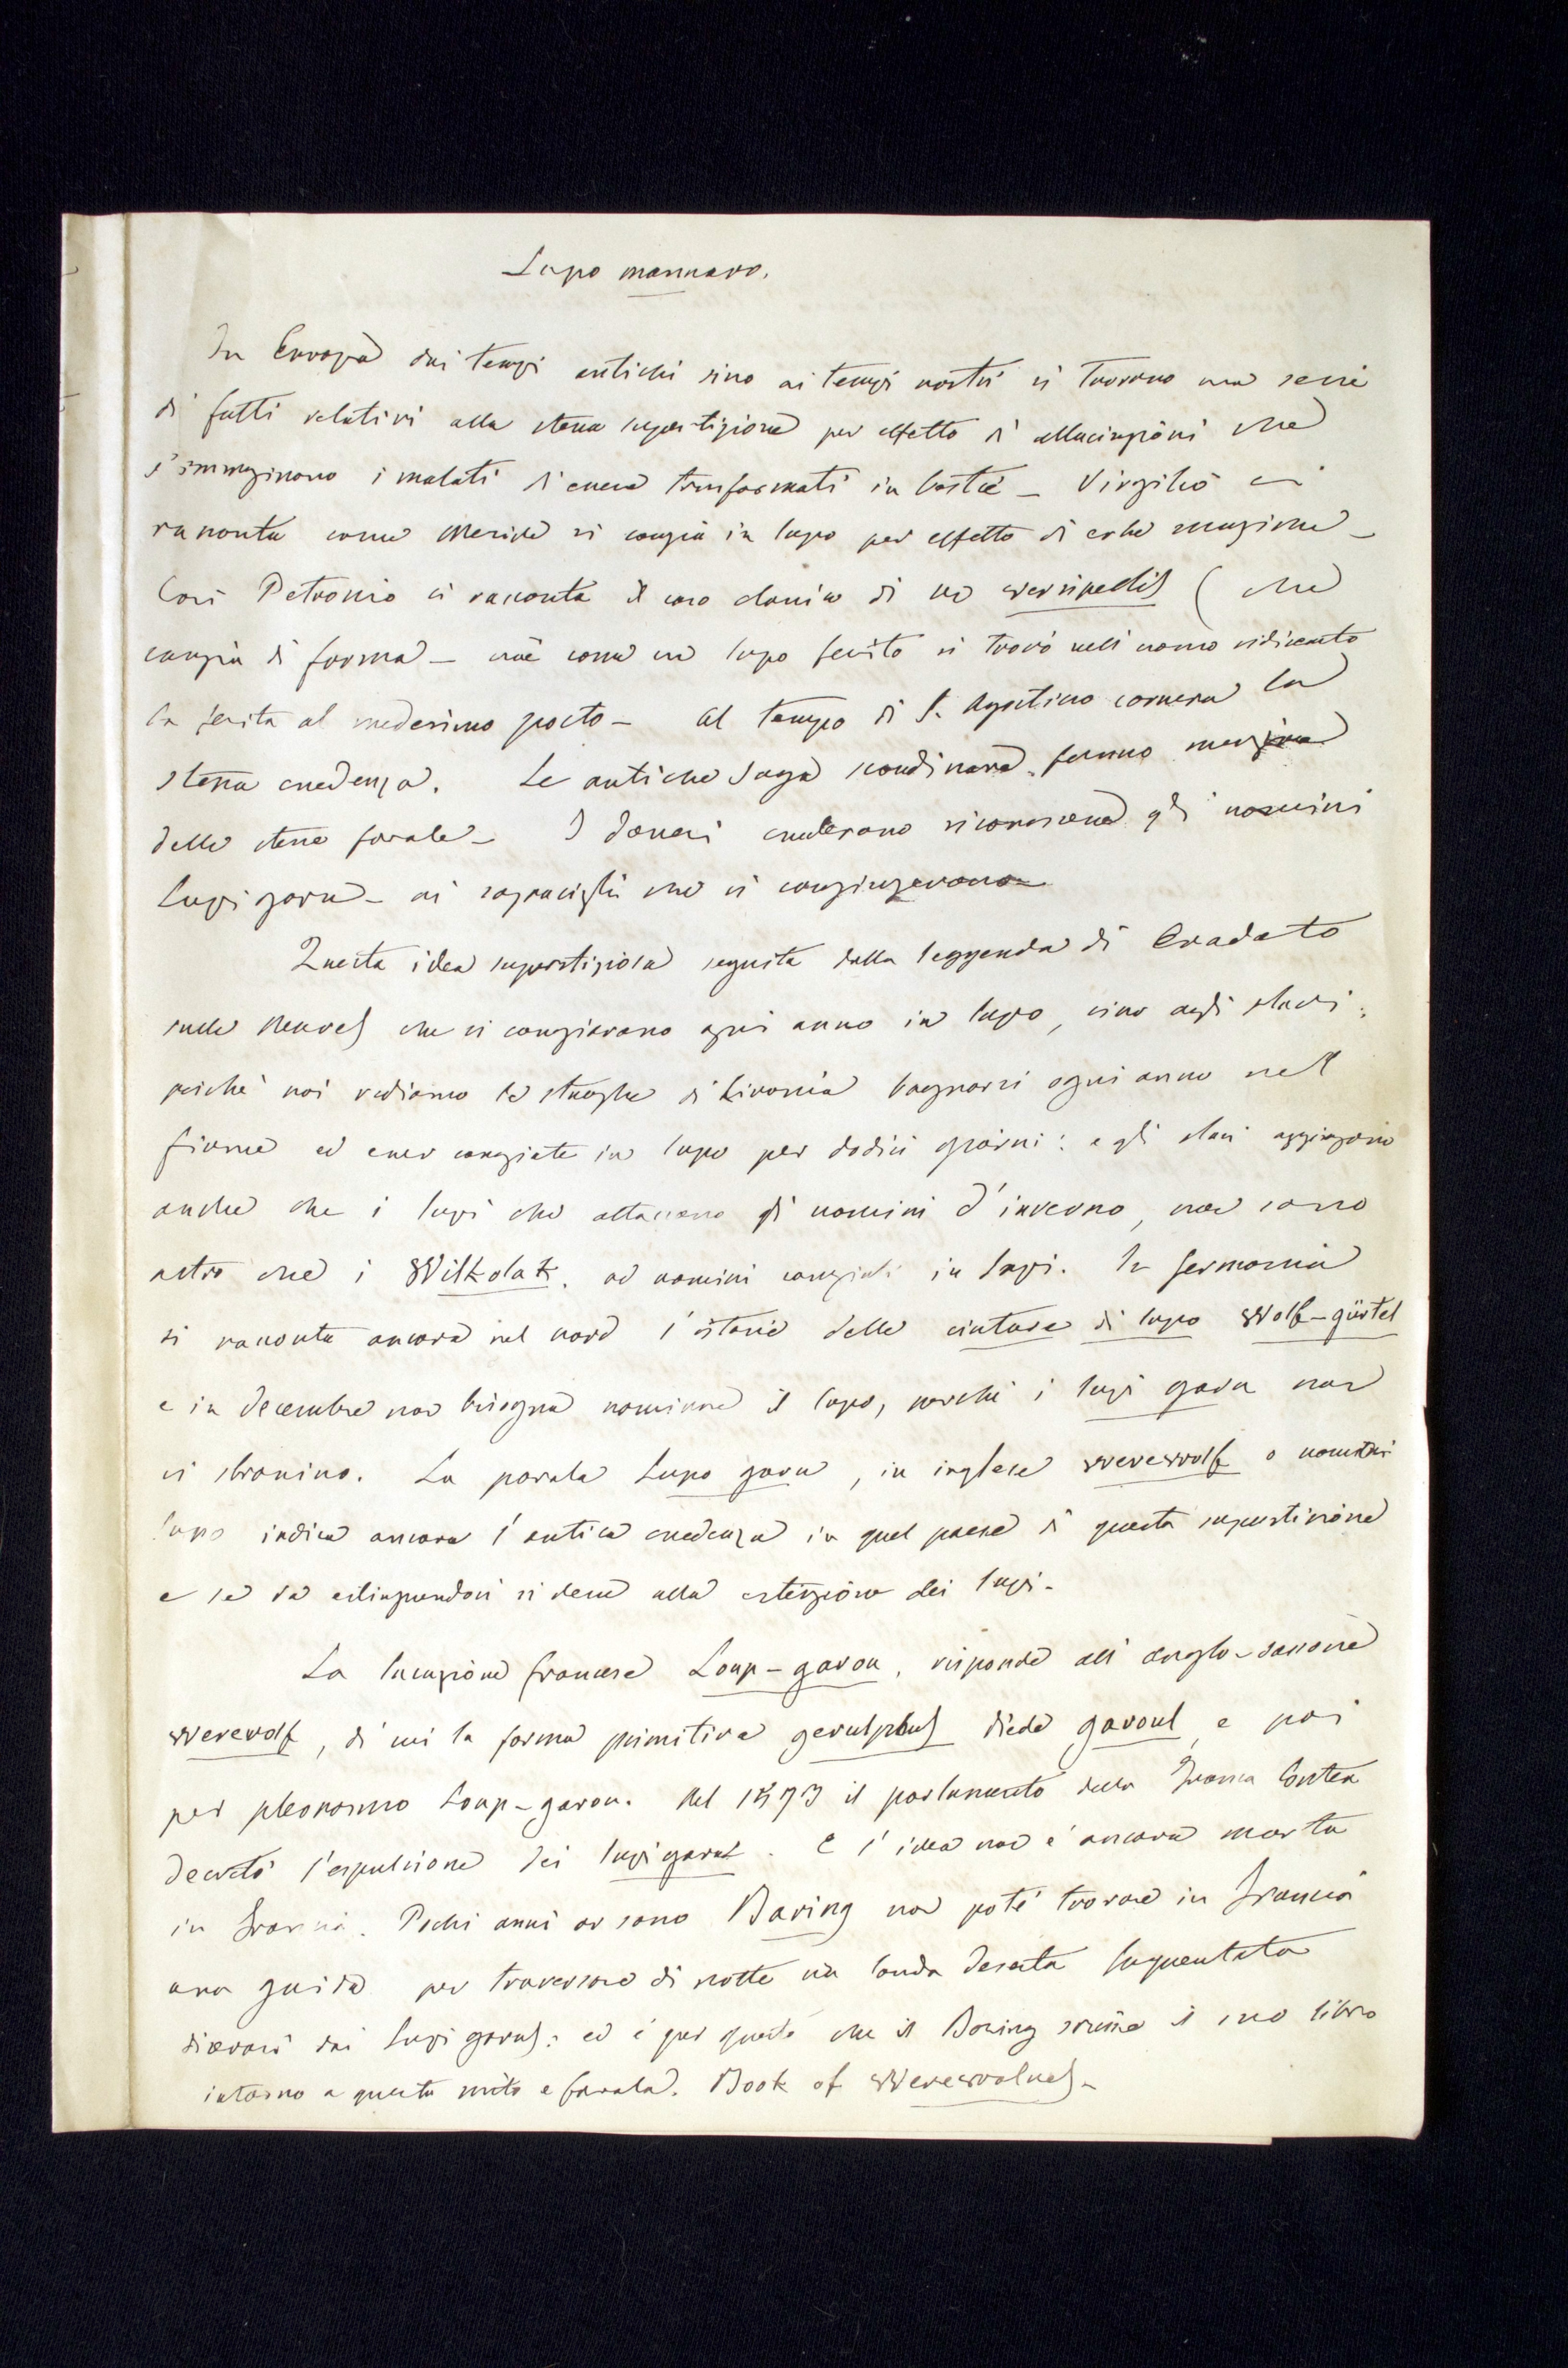 Lupo mannaro.
In Europa dai tempi antichi sino ai tempi nostri si trovano una serie
di fatti relativi alla stessa superstizione per effetto di allucinazioni che
s'immaginano i malati di essere trasformati in bestie - Virgilio ci
racconta come Meride si cangia in lupo per effetto di erbe magiche -
Così Petronio ci racconta il caso classico di un versipellis ( che
cangia di forma - cioè come un lupo ferito si trovò nell uomo ridivenuto
la ferita al medesimo posto - Al tempo di S. Agostino correva la
stessa credenza. Le antiche Saga scandinave fanno menzione
delle stesse favole - I Danesi credevano riconoscere gli uomini
lupi garu - ai sopracigli che si congiungevano
Questa idea superstiziosa seguita dalla leggenda di Erodoto
sulle Neures che si cangiavano ogni anno in lupo, sino agli slavi:
poichè noi vediamo le streghe di Livonia bagnarsi ogni anno nel
fiume ed esser cangiate in lupo per dodici giorni: e gli slavi aggiungono
anche che i lupi che attaccano gli uomini d'inverno, non sono
altro che i Wilkolak. od uomini cangiati in lupi. In Germania
si racconta ancora nel nord l'istorie delle cinture di lupo Wolf-gürtel
e in Decembre non bisogna nominare il lupo, perchè i lupi garu non
si sbranino. La parola Lupo garu, in inglese werewolf o uomini
lupo indica ancora l'antica credenza in quel paese di questa superstizione
e se va estinguendosi si deve alla estinzione dei lupi.
La locuzione francese Loup-garou, risponde all anglo-sassone
werewolf, di cui la forma primitiva gerulphus diede garoul e poi
per pleonasmo Loup-garou. Nel 1573 il parlamento della Franca Contea
decretò l'espulsione dei lupi garu. E l'idea non è ancora morta
in Francia. Pochi anni or sono Baring non potè trovare in Francia
una guida per traversare di notte una landa deserta frequentata
dicevasi dai lupi garus: ed è per questo che il Baring scrisse il suo libro
intorno a questo mito e favola. Book of Werewolves -